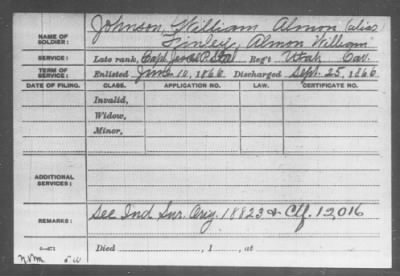 NAME OF SOLDIER: Johnson, William Almon (alias
Finley, Almon William
SERVICE: Late rank, Capt. Reg't Utah Cav.
TERM OF SERVICE: Enlisted June 10, 1866 Discharged Sept. 25, 1866
DATE OF FILING. CLASS. APPLICATION NO. LAW. CERTIFICATE NO.
Invalid,
Widow,
Minor,
ADDITIONAL SERVICES:
REMARKS: See Ind Sur. Orig. 18823 & Ctf. 12,016
Died , 1 , at